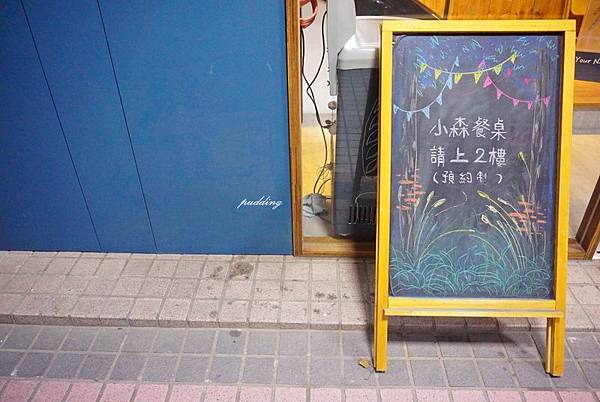 小森餐桌
請上2樓
(預約制)
pudding
Your N